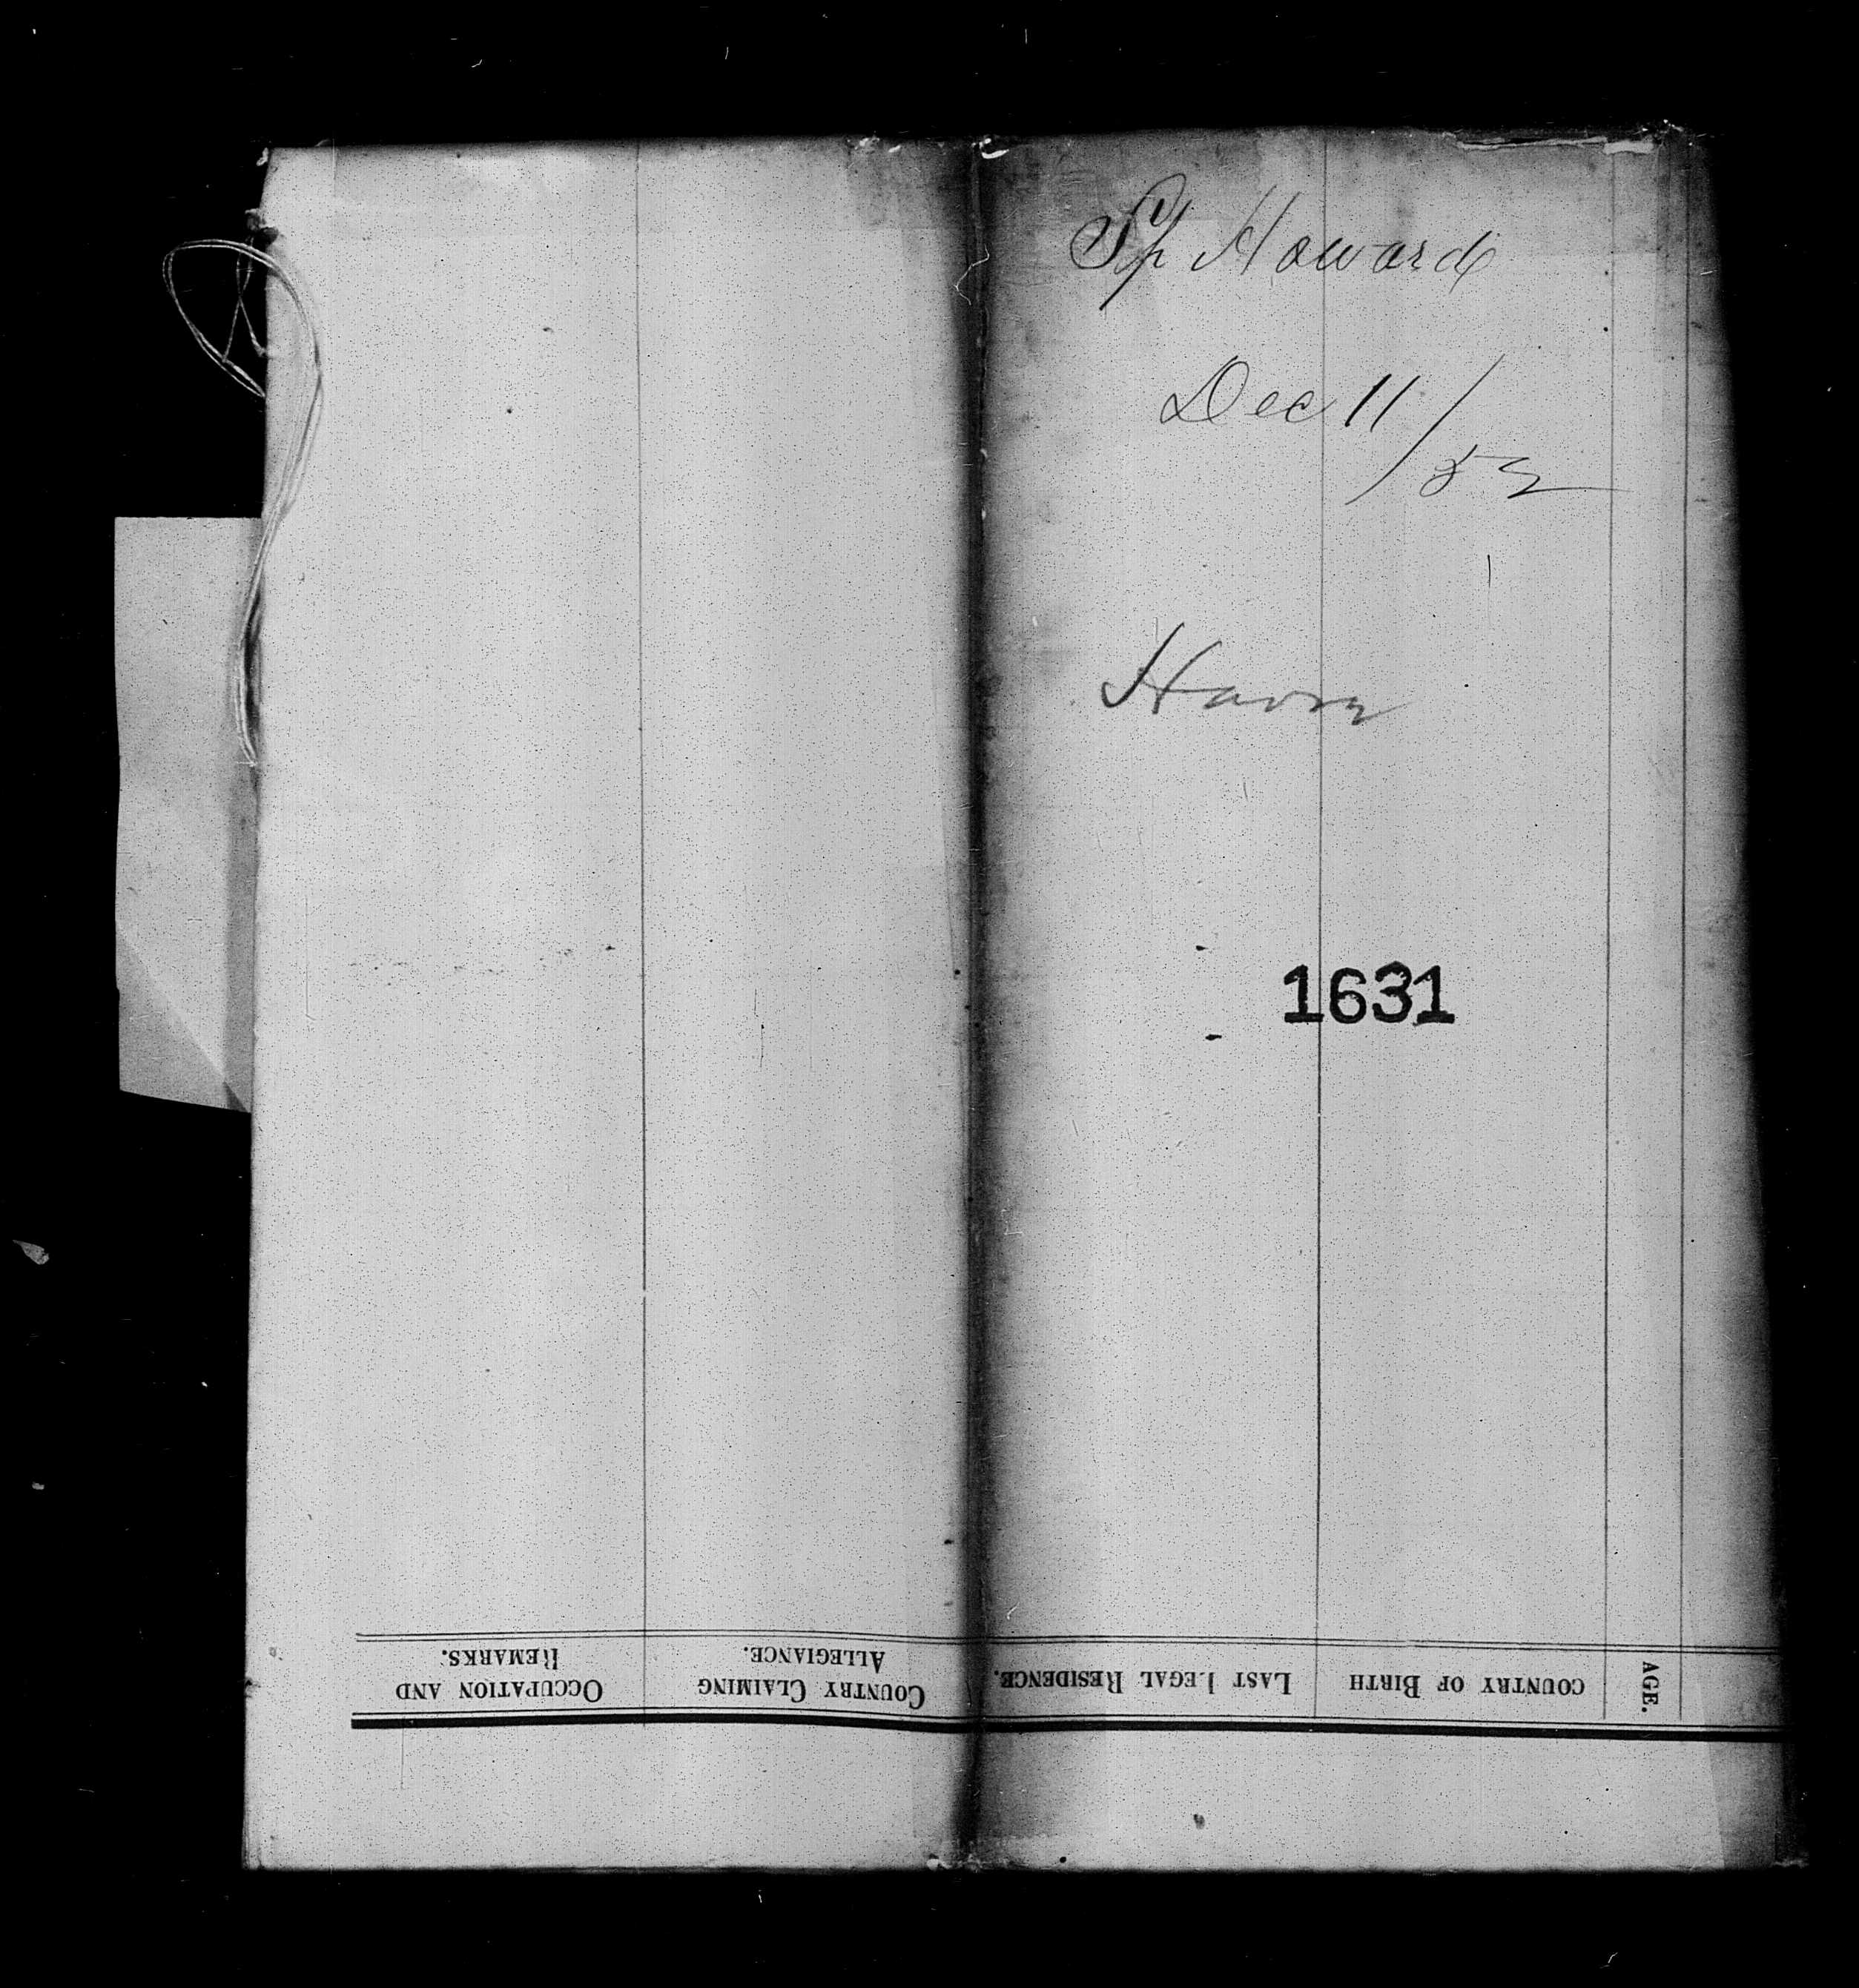 Sp Howard
Dec 11/52
Havre
1631
AGE.
COUNTRY OF BIRTH
LAST LEGAL RESIDENCE.
COUNTRY CLAIMING
ALLEGIANCE.
OCCUPATION AND
REMARKS.